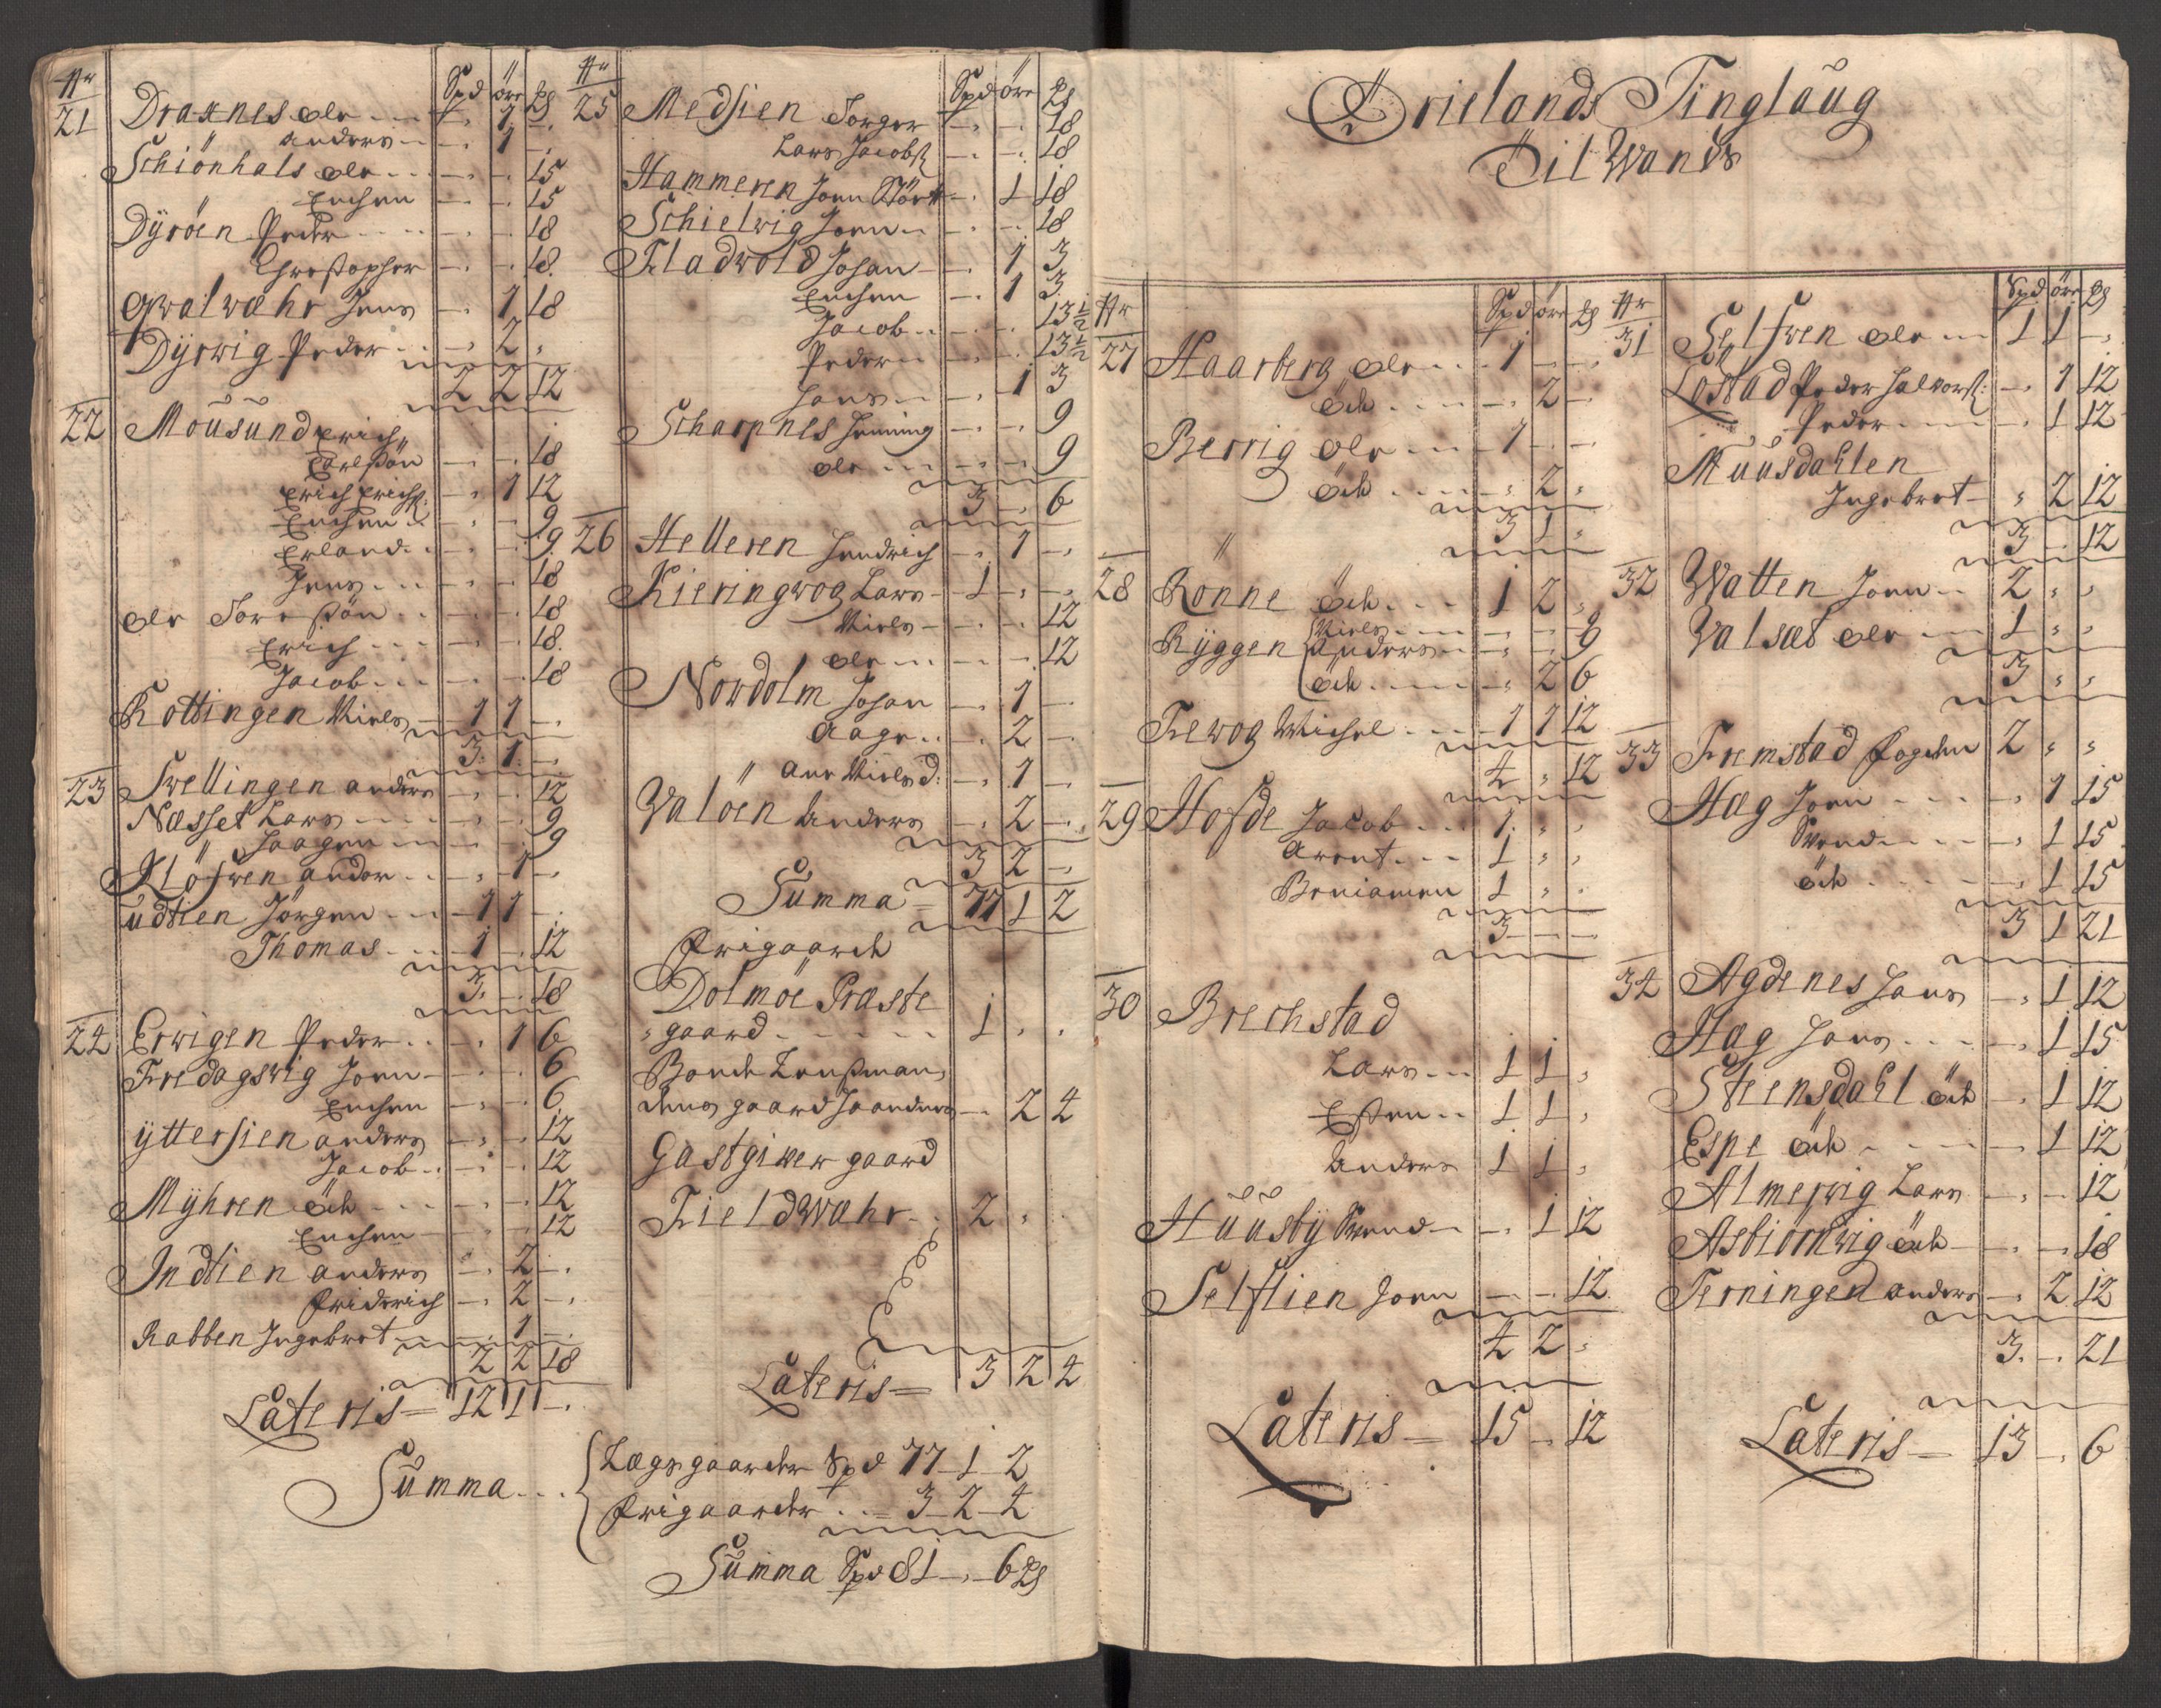 Nr Spd öre ₰
21 Draxnes ole - 1 -
anders - 1 -
Schiönhals ole - - 15
Enchen - - 15
Dÿröen Peder - - 18
Christopher - - 18
Qwalwahr Jens - 1 18
Dÿrwig Peder - 2 -
2 2 12
22 Mousund Erich
Carlssön - - 18
Erich Erichs: - 1 12
Enchen - - 9
Erland - - 9
Jens - - 18
ole Toressön - - 18
Erich - - 18
Jacob - - 18
Kottingen Niels 1 1 -
3 1 -
23 Swellingen anders - - 12
Næsset Lars - - 9
Jaagen - - 9
Kløfwen ander - 1 -
udtien Jörgen 1 1 -
Thomas 1 - 12
3 - 18
24 Erwigen Peder - 1 6
Fredagswig Joen - - 6
Enchen - - 6
ÿttersien anders - - 12
Jacob - - 12
Mÿhren öde - - 12
Enchen - - 12
Indtien anders - 2 -
Friderich - 2 -
Rabben Ingebret - 1 -
2 2 18
Lateris = 12 1 -
Nr Spd öre ₰
25 Medsien Torger - - 18
Lars Jacobs - - 18
Hammeren Joen - 1 18
Schielwig Joen - - 18
Fladwold Johan - 1 3
Enchen - 1 3
Jacob - - 13½
Peder - - 13½
Hans - 1 3
Scharpnes Henning - - 9
ole - - 9
3 - 6
26 Helleren Hendrich - 1 -
Kieringwog Lars 1 - -
Niels - - 12
ole - - 12
Nordolm Johan - 1 -
Aage - 2 -
ane Nielsd: - 1 -
Waloen Anders - 2 -
3 2 -
Summa = 77 1 2
Frigaarde
Dolmöe Præste
gaard 1 - -
Bonde Lensmand
gaard - 2 4
Gastgiver gaard
Fieldwahr 2 - -
Lateris = 3 2 4
Summa
Lægsgaarder Spd 77-1-2
Frigaarder = 3-2-4
Summa Spd 81 - 6 ₰
Ørielands Tinglaug
Til Wands
Nr Spd öre ₰
27 Haarberg ole 1 - -
öde - 2 -
Berrig ole 1 - -
öde - 2 -
3 1 -
28 Rönne öde 1 2 -
Niels
Rÿggen anders - - 9
öde - 2 6
Trewog Michel 1 1 12
4 - 12
29 Hofde Jacob 1 - -
Arent 1 - -
Beniamen 1 - -
3 - -
30 Brechstad
Lars 1 1 -
Esten 1 1 -
Anders 1 1 -
Huusbÿ Svend - 1 12
Selflien Joen - - 12
4 2 -
Lateris = 15 - 12
Nr Spd öre ₰
31 Selfwen ole 1 1 -
Löstad Peder Halvors: - 1 12
Peder - 1 12
Muusdahlen
Ingebret - 2 12
3 - 12
32 Watten Joen 2 - -
Walsæt ole 1 - -
3 - -
33 Fremstad fogden 2 - -
Hag Joen - 1 15
Svend - 1 15
öde - 1 15
3 1 21
34 Agdenes Hans - 1 12
Hag Hans - 1 15
Steensdahl öde - 1 12
Espe öde - 1 12
Almerwig Lars - - 12
Asbiörnwig öde - - 18
Terningen anders - 2 12
3 - 21
Lateris = 13 - 6